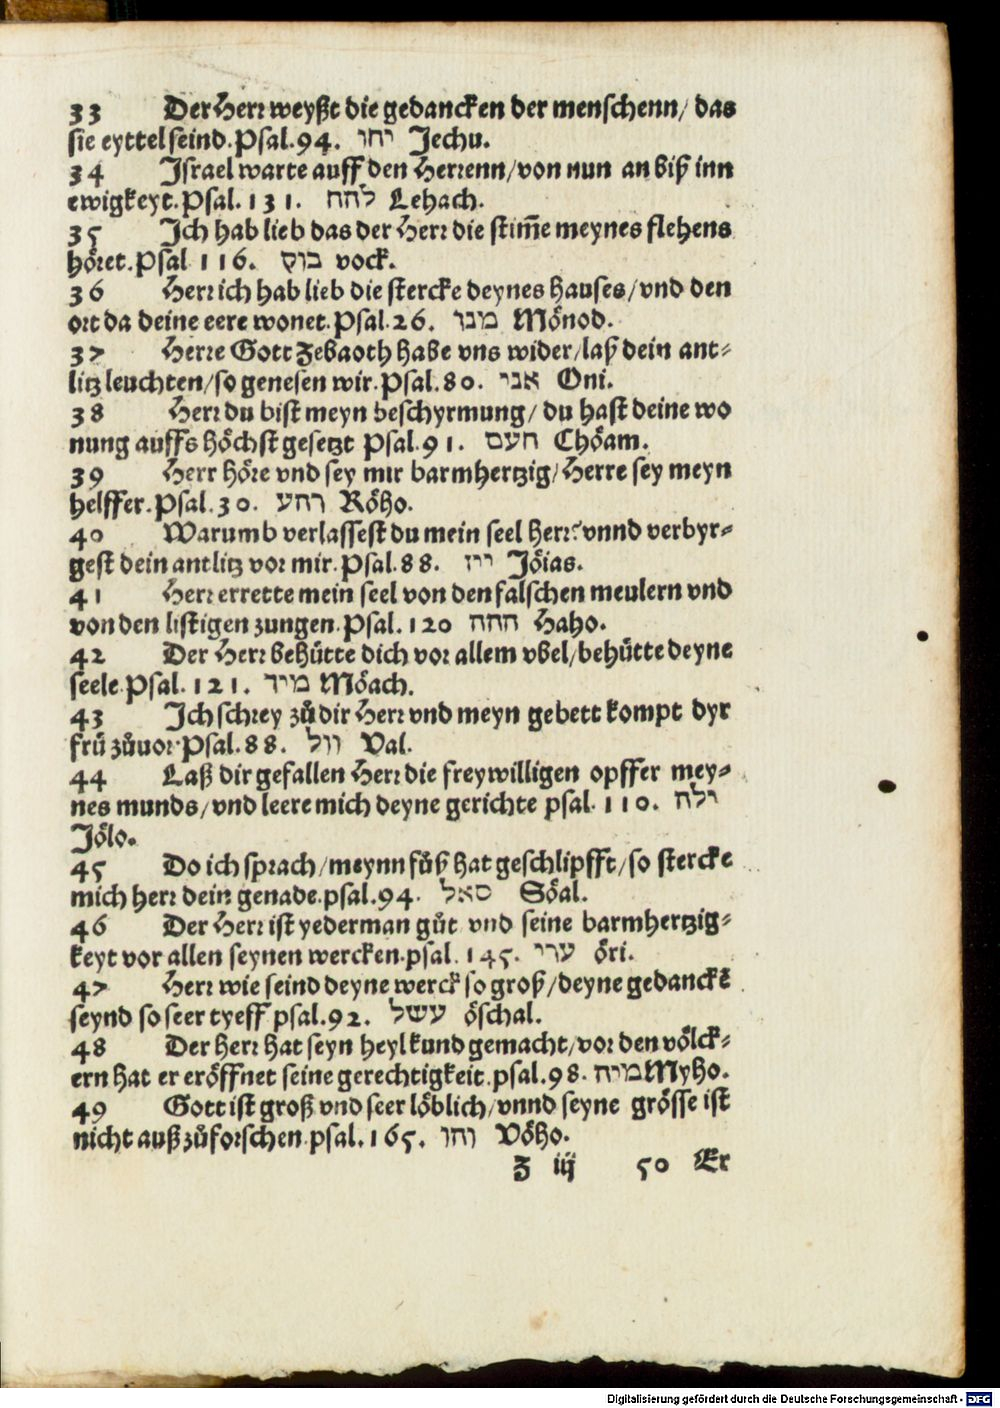 33 Der Herr weyßt die gedancken der menschenn/ das
sie eyttel seind. Psal. 94. יחו Jechu.
34 Israel warte auff den Herrenn/ von nun an biß inn
ewigkeyt. Psal. 131. להח Lehach.
35 Ich hab lieb das der Herr die stim̅e meynes flehens
höret. Psal 116. בוק vock.
36 Herr ich hab lieb die stercke deynes hauses/ vnd den
ort da deine eere wonet. Psal. 26. מנד Mönod.
37 Herre Gott Zebaoth habe vns wider/ laß dein ant⸗
litz leuchten/ so genesen wir. Psal. 80. אני Oni.
38 Herr du bist meyn beschyrmung/ du hast deine wo
nung auffs höchst gesetzt Psal. 91. חעם Chöam.
39 Herr höre vnd sey mir barmhertzig/ Herre sey meyn
helffer. Psal. 30. רהע Röho.
40 Warumb verlassest du mein seel Herr? vnnd verbyr⸗
gest dein antlitz vor mir. Psal. 88. ייז Jöias.
41 Herr errette mein seel von den falschen meulern vnd
von den listigen zungen. Psal. 120 ההה Haho.
42 Der Herr behütte dich vor allem vbel/ behütte deyne
seele. Psal. 121. מיך Möach.
43 Ich schrey zů dir Herr vnd meyn gebett kompt dyr
frü zůuor. Psal. 88. וול Val.
44 Laß dir gefallen Herr die freywilligen opffer mey⸗
nes munds/ vnd leere mich deyne gerichte psal. 110. ילה
Jölo.
45 Do ich sprach/ meynn fůß hat geschlipfft/ so stercke
mich herr dein genade. psal. 94. סאל Söal.
46 Der Herr ist yederman gůt vnd seine barmhertzig⸗
keyt vor allen seynen wercken. psal. 145. ערי öri.
47 Herr wie seind deyne werck so groß/ deyne gedanckē
seynd so seer tyeff psal. 92. עשל öschal.
48 Der Herr hat seyn heyl kund gemacht/ vor den völck⸗
ern hat er eröffnet seine gerechtigkeit. psal. 98. מיה Myho.
49 Gott ist groß vnd seer löblich/ vnnd seyne grösse ist
nicht auß zůforschen. psal. 165. והו Vöho.
Z iij 50 Er
Digitalisierung gefördert durch die Deutsche Forschungsgemeinschaft - DFG